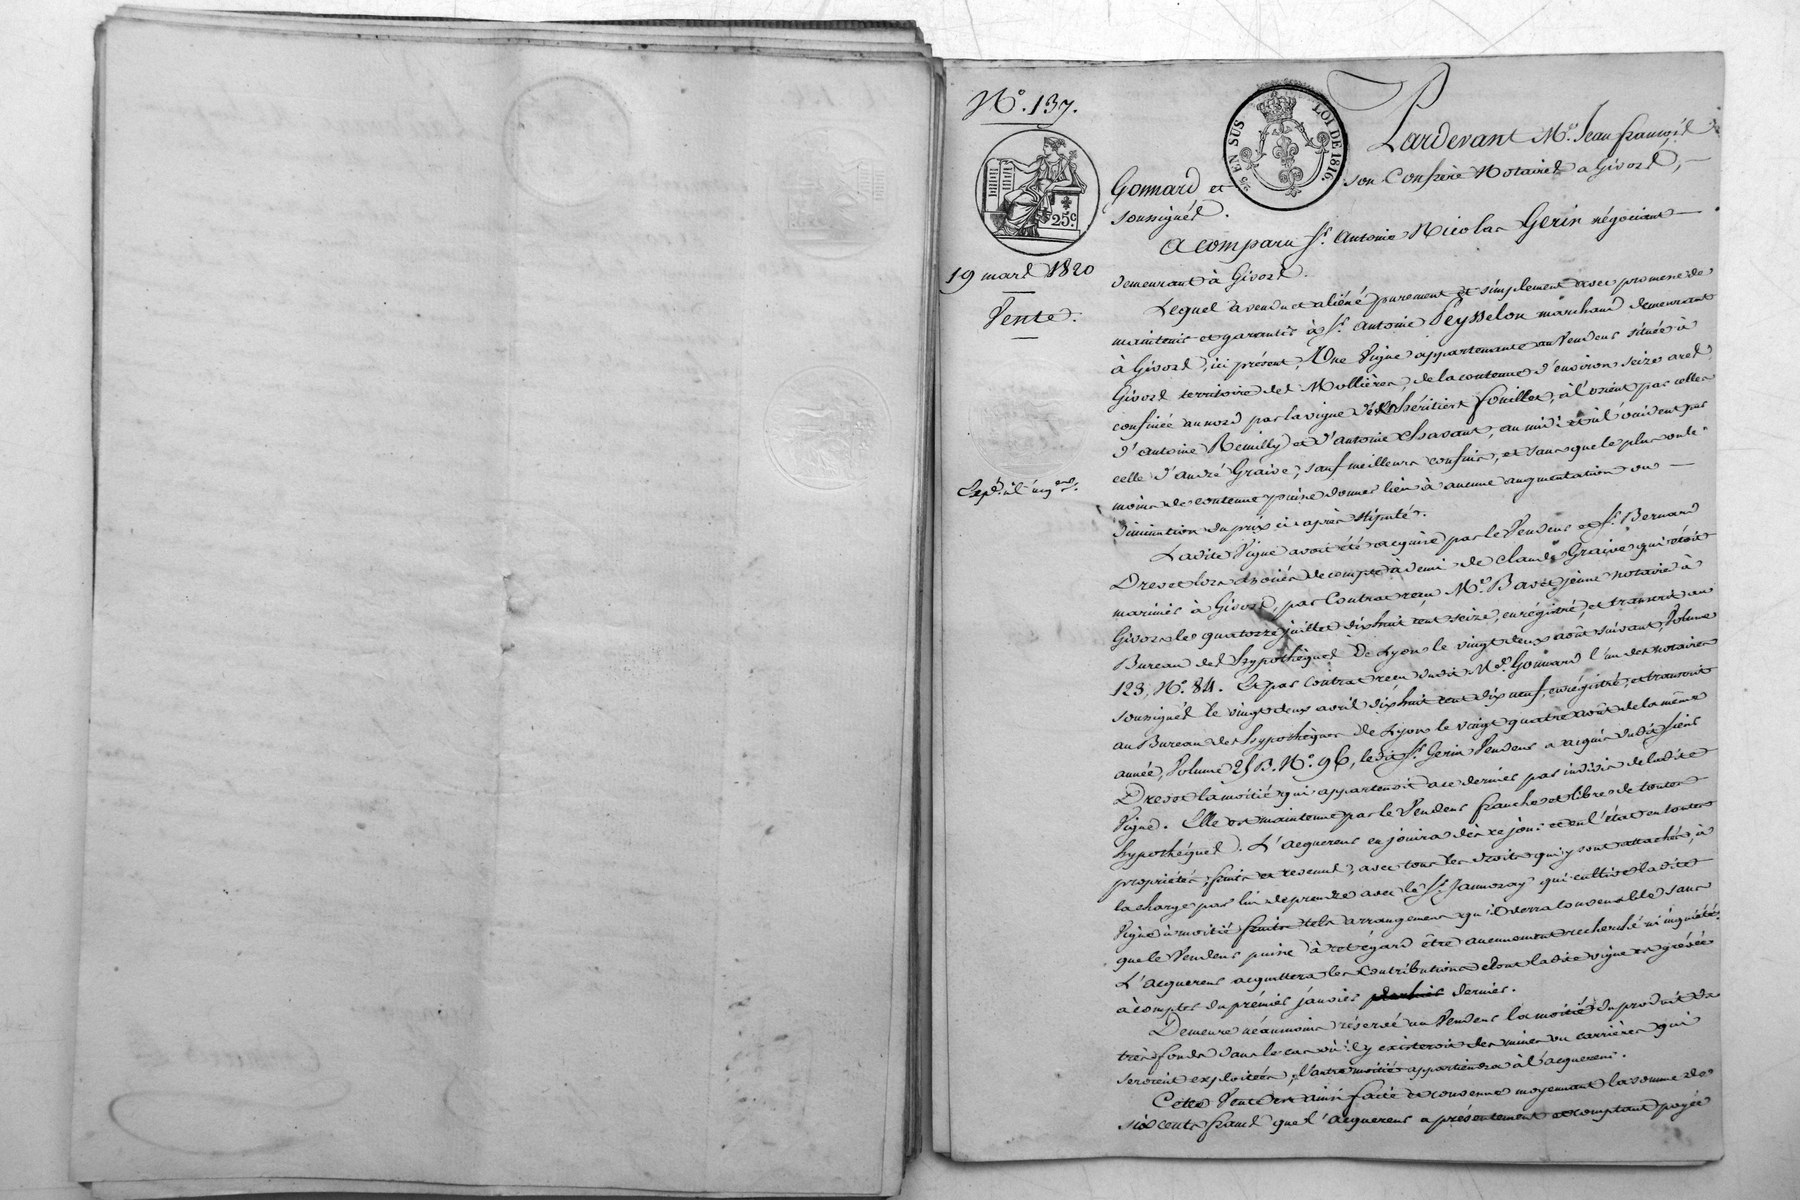 N.º 137.
25 EN SUS LOI DE 1816.
25.c
19 mars 1820
Vente.
Expéd.
Pardevant M.e Jean françois
Gonnard et son Confrère Notaires a Givors,
soussignés.
A comparu S.r Antoine Nicolas Gerin négociant
demeurant à Givors.
Lequel a vendu et aliéné purement et simplement avec promesse de
maintenir et garantir à S.r Antoine Peysselon marchand demeurant
à Givors, ici présent, Une Vigne appartenante au Vendeur située à
Givors territoire des Mollières, de la contenue d'environ seize ares
confinée au nord par la vigne des héritiers fouillet, à l'orient par celles
d'Antoine Remilly et d'antoine Chavant, au midi et à l'occident par
celle d'andré Graive, sauf meilleurs confins, et sans que le plus ou le
moins de contenue puisse donner lieu à aucune augmentation ou
diminution du prix ci-après stipulé.
Ladite Vigne avoit été acquise par le Vendeur et S.r Bernard
Drevet lors associés de compte à demi de Claude Graive qui étoit
marinier à Givors, par Contrat reçu M.e Bast jeune notaire à
Givors le quatorze juillet dix huit cent seize, enregistré, et transcrit au
Bureau des hypothèques De Lyon le vingt deux août suivant, Volume
123, N.º 84. Et par contrat reçu dudit M.e Gonnard l'un des notaires
soussignés le vingt deux avril dix huit cent dix neuf, enregistré, et transcrit
au Bureau des hypothèques de Lyon le vingt quatre août de la même
année, Volume N.º 96, ledit S.r Gerin Vendeur a acquis dudit sieur
Drevet la moitié qui appartenoit a ce dernier par indivis de ladite
Vigne. Elle est maintenue par le Vendeur franche et libre de toutes
hypothèques. L'acquereur en jouira dès ce jour et en l'état en toutes
propriétés, fruits et revenus, avec tous les droits qui y sont attachés, à
la charge par lui de prendre avec le S.r Jamoray qui cultive ladite
Vigne à moitié fruits tels arrangemens qu'il verra convenable sans
que le Vendeur puisse à cet égard être aucunement recherché ni inquiété.
L'acquereur acquittera les Contributions dont ladite vigne est grévée
à compter du premier janvier dernier.
Demeure néanmoins réservé au Vendeur la moitié du produit du
très fonds dans le cas où il y existeroit des mines ou carrières qui
seroient exploitées, l'autre moitié appartiendra à l'acquereur.
Cette Vente est ainsi faite et convenue moyennant la somme de
six cents francs que l'acquereur a présentement et comptant payée